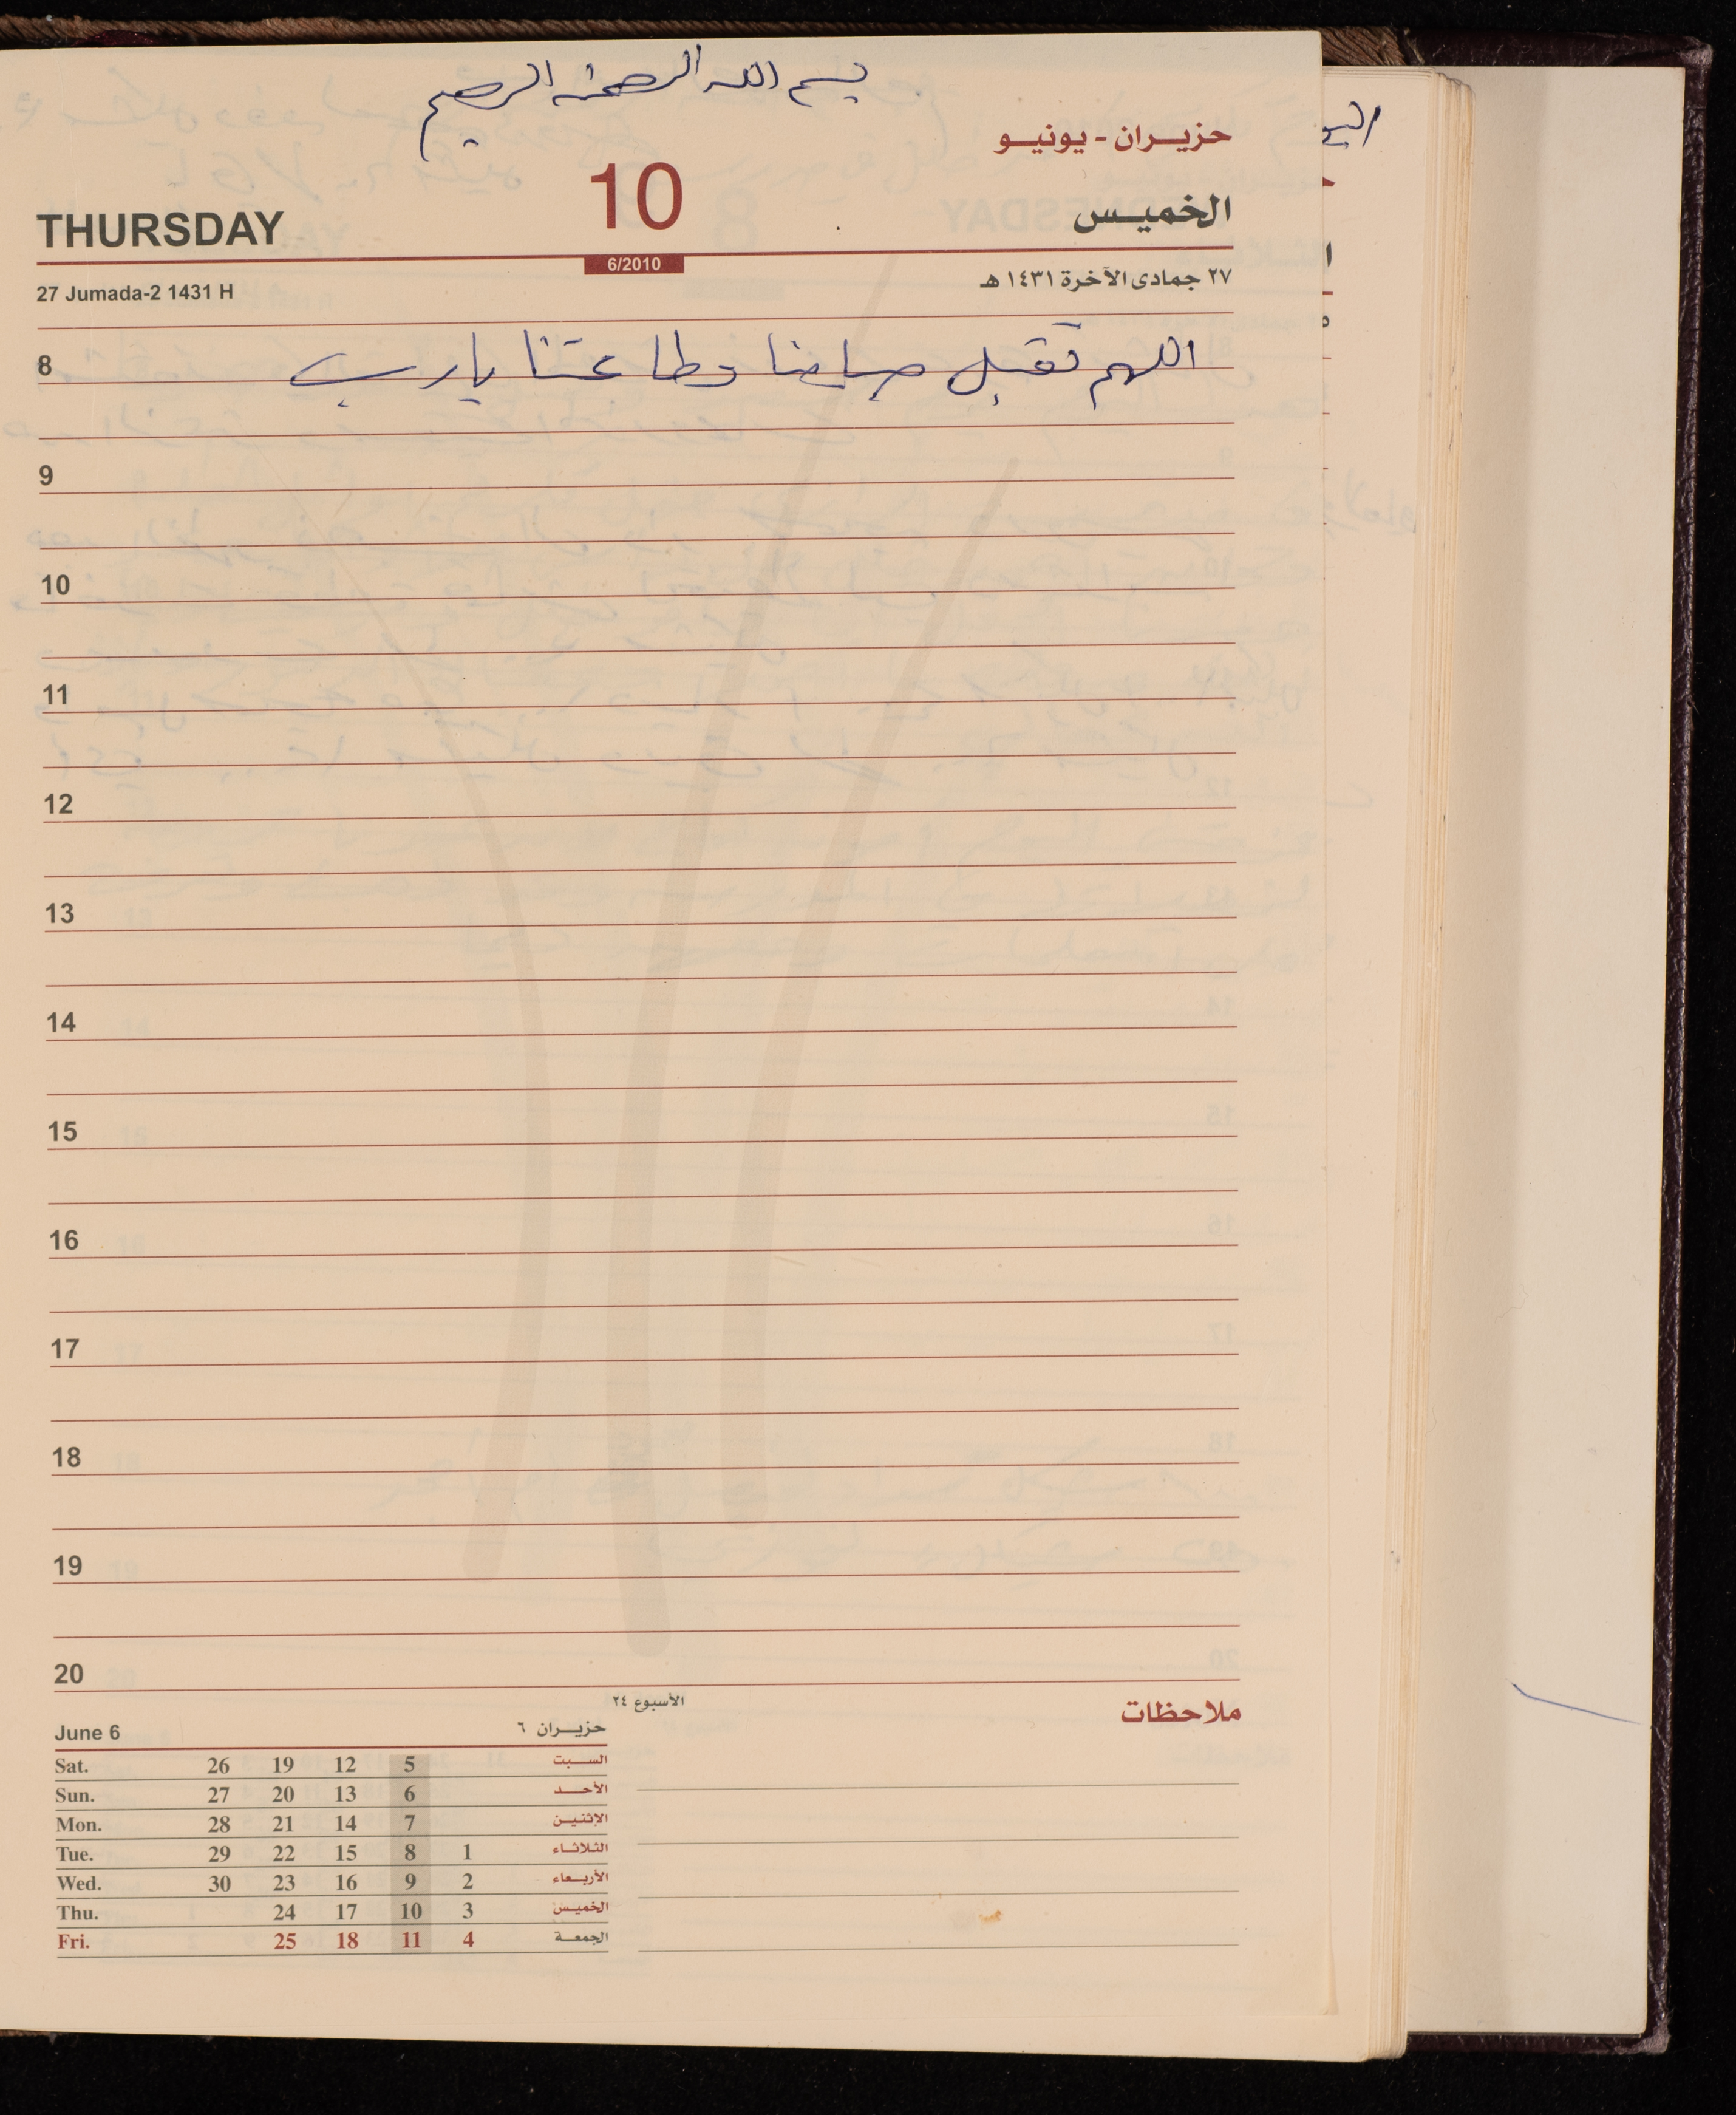 بسم الله الرحمن الرحيم
حزيران - يونيو
THURSDAY 10 الخميس
6/2010
27 Jumada-2 1431 H ٢٧ جمادى الآخرة ١٤٣١ هـ
8 اللهم تقبل صيامنا وطاعتنا يارب
9
10
11
12
13
14
15
16
17
18
19
20
الأسبوع ٢٤
ملاحظات
June 6 حزيران ٦
Sat. 26 19 12 5 السبت
Sun. 27 20 13 6 الأحد
Mon. 28 21 14 7 الإثنين
Tue. 29 22 15 8 1 الثلاثاء
Wed. 30 23 16 9 2 الأربعاء
Thu. 24 17 10 3 الخميس
Fri. 25 18 11 4 الجمعة